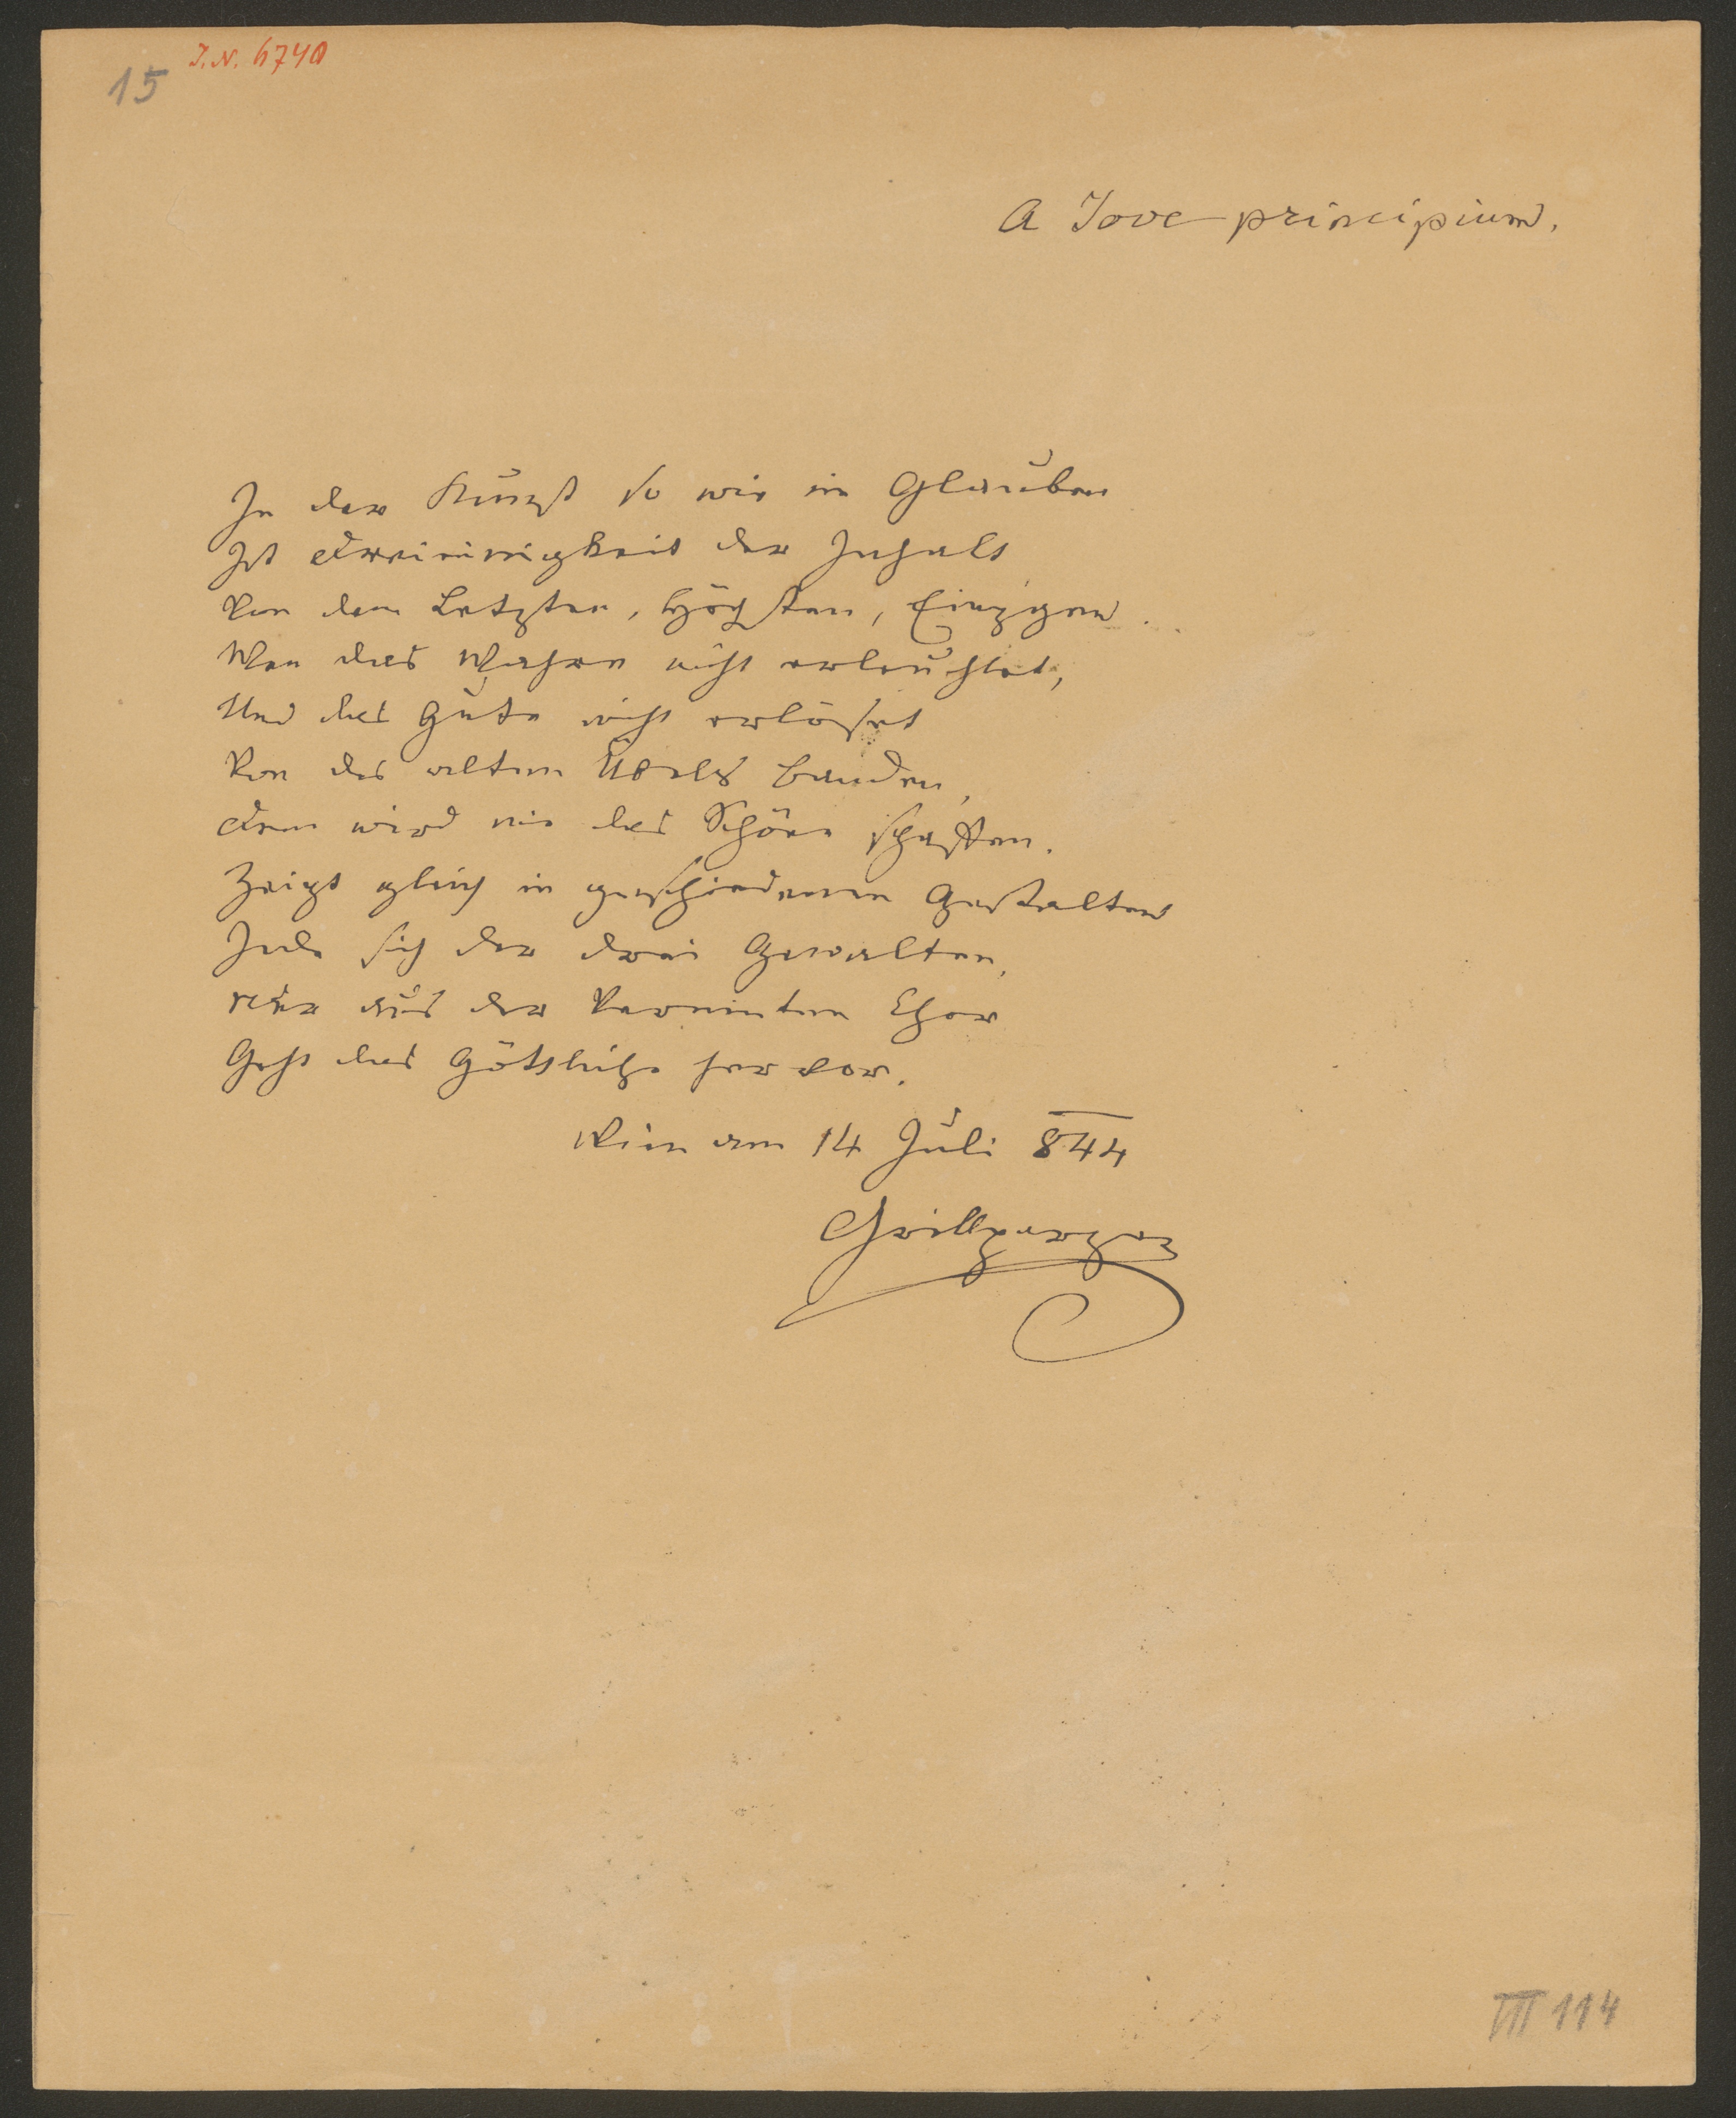 15
I. N. 6740
A Jove principium.
In der Kunst so wie im Glauben
Ist Dreieinigkeit der Inhalt
Von dem Letzten, Höchsten, Einzgen.
Wen das Wahre nicht erleuchtet,
Und das Gute nicht erlöset
Von des alten Übels Banden,
Dem wird nie das Schöne schaffen.
Zeigt gleich in geschiedenen Gestalten
Jede sich der drei Gewalten,
Nur aus der Vereinten Chor
Geht das Göttliche hervor.
Wien am 14 Juli 844
Grillparzer
VII 114